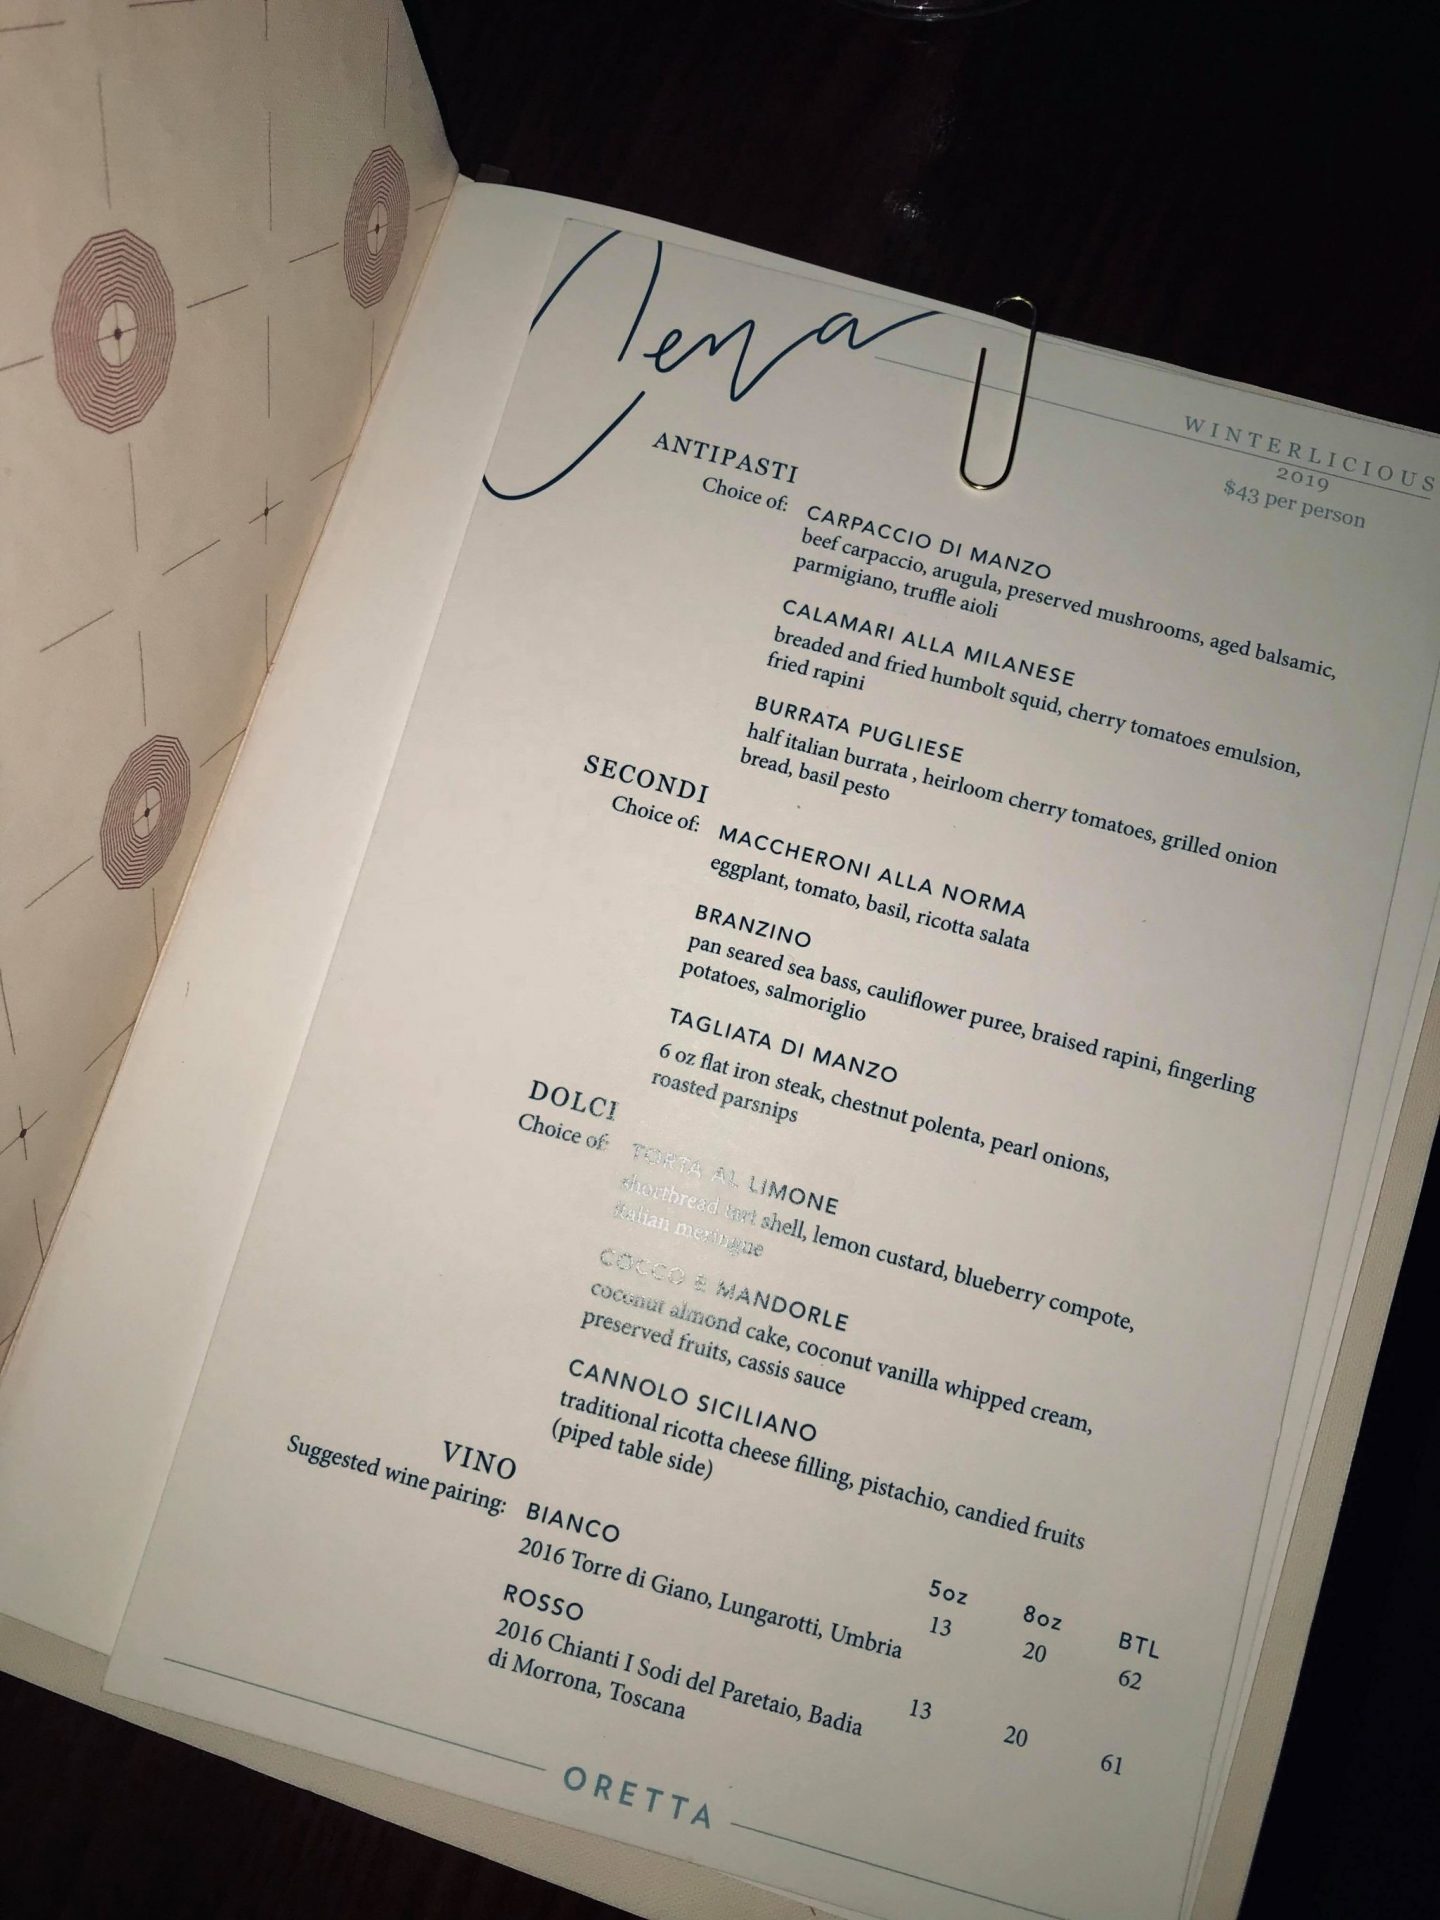 Cena
WINTERLICIOUS
2019
$43 per person
ANTIPASTI
Choice of:
CARPACCIO DI MANZO
beef carpaccio, arugula, preserved mushrooms, aged balsamic,
parmigiano, truffle aioli
CALAMARI ALLA MILANESE
breaded and fried humbolt squid, cherry tomatoes emulsion,
fried rapini
BURRATA PUGLIESE
half italian burrata , heirloom cherry tomatoes, grilled onion
bread, basil pesto
SECONDI
Choice of:
MACCHERONI ALLA NORMA
eggplant, tomato, basil, ricotta salata
BRANZINO
pan seared sea bass, cauliflower puree, braised rapini, fingerling
potatoes, salmoriglio
TAGLIATA DI MANZO
6 oz flat iron steak, chestnut polenta, pearl onions,
roasted parsnips
DOLCI
Choice of:
TORTA AL LIMONE
shortbread tart shell, lemon custard, blueberry compote,
italian meringue
COCCO E MANDORLE
coconut almond cake, coconut vanilla whipped cream,
preserved fruits, cassis sauce
CANNOLO SICILIANO
traditional ricotta cheese filling, pistachio, candied fruits
(piped table side)
VINO
Suggested wine pairing:
5oz 8oz BTL
BIANCO
2016 Torre di Giano, Lungarotti, Umbria 13 20 62
ROSSO
2016 Chianti I Sodi del Paretaio, Badia 13 20 61
di Morrona, Toscana
ORETTA